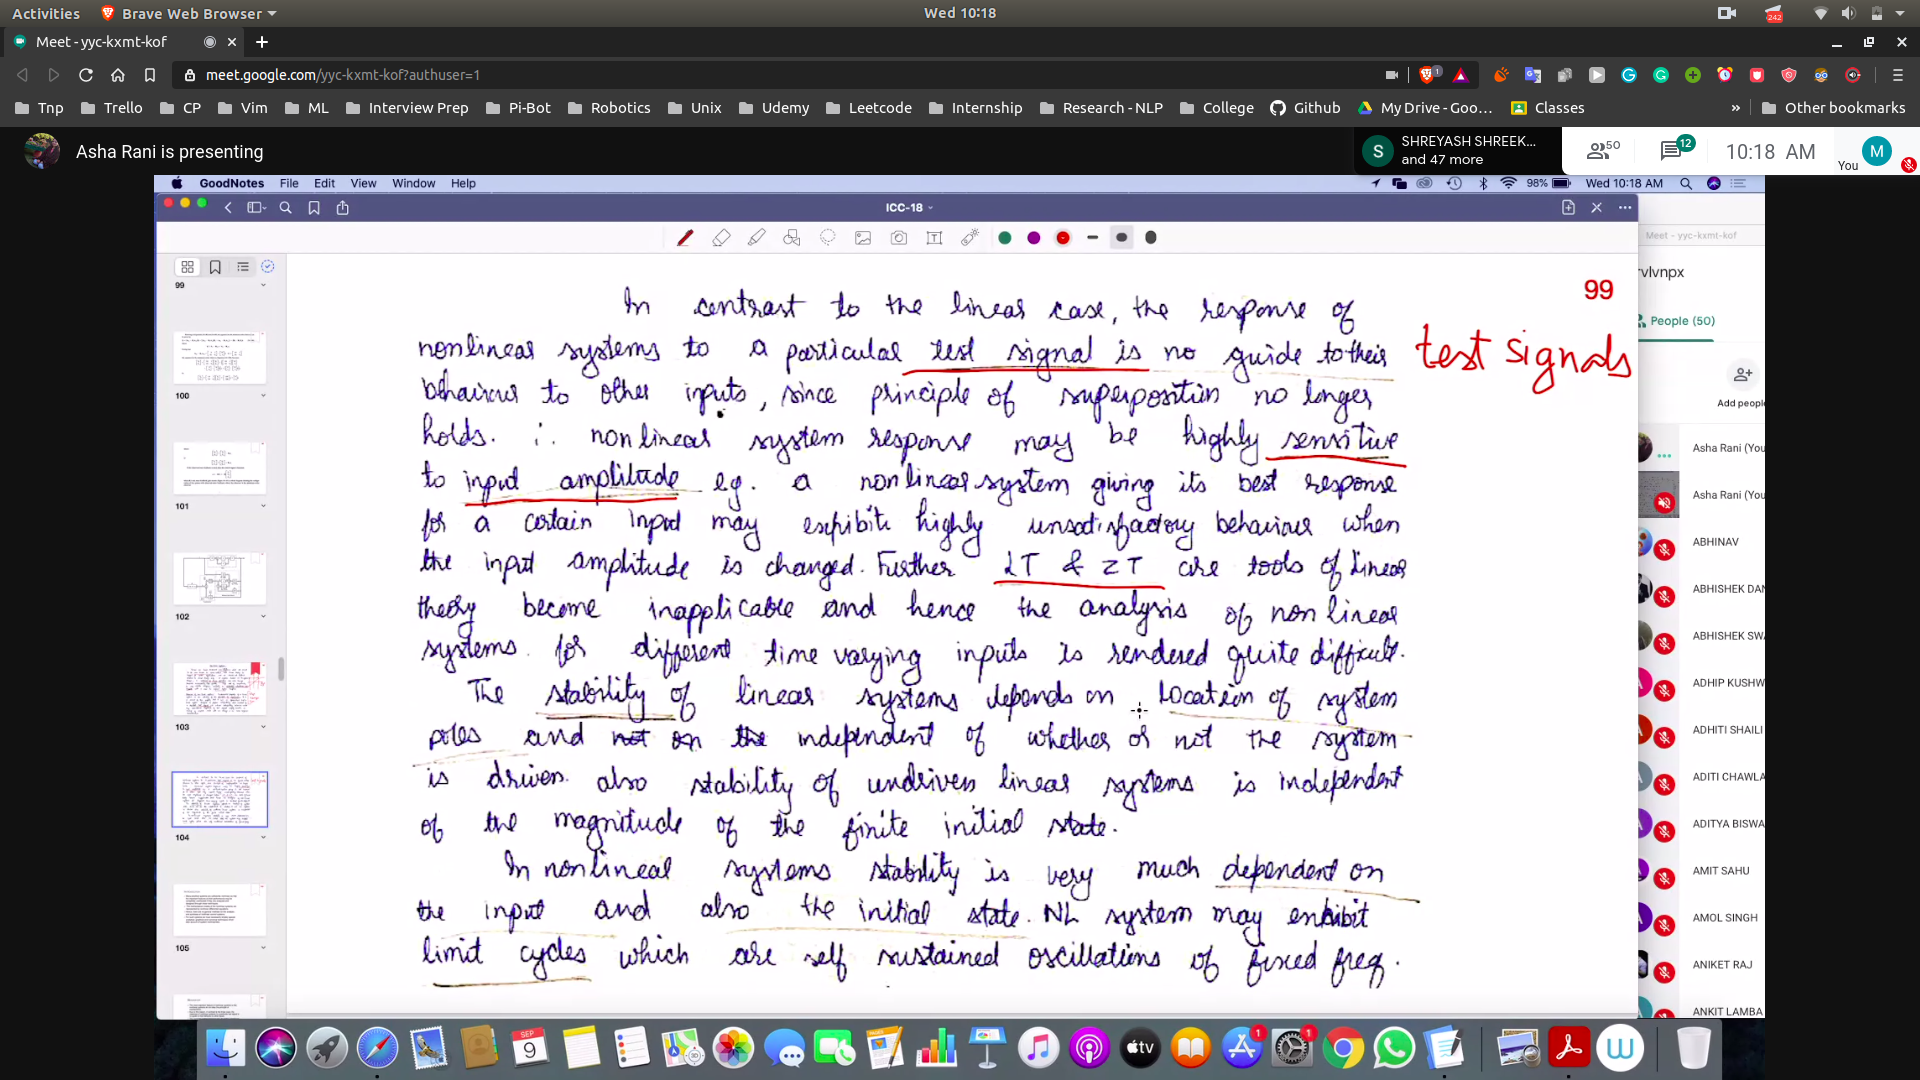 Activities Brave Web Browser Wed 10:18 242
Meet - yyc-kxmt-kof
meet.google.com/yyc-kxmt-kof?authuser=1 1
Tnp Trello CP Vim ML Interview Prep Pi-Bot Robotics Unix Udemy Leetcode Internship Research - NLP College Github My Drive - Goo... Classes » Other bookmarks
Asha Rani is presenting
S SHREYASH SHREEK...
and 47 more
50 12 10:18 AM You M
GoodNotes File Edit View Window Help 98% Wed 10:18 AM
ICC-18
Meet - yyc-kxmt-kof
99
100
101
102
103
104
105
99
In contrast to the linear case, the response of
nonlinear systems to a particular test signal is no guide to their
test signals
behaviour to other inputs, since principle of superposition no longer
holds. ∴ nonlinear system response may be highly sensitive
to input amplitude e.g. a nonlinear system giving its best response
for a certain input may exhibit highly unsatisfactory behaviour when
the input amplitude is changed. Further LT & ZT are tools of linear
theory become inapplicable and hence the analysis of non linear
systems for different time varying inputs is rendered quite difficult.
The stability of linear systems depends on location of system
poles and not on the independent of whether or not the system
is driven. also stability of undriven linear systems is independent
of the magnitude of the finite initial state.
In nonlinear systems stability is very much dependent on
the input and also the initial state. NL system may exhibit
limit cycles which are self sustained oscillations of fixed freq.
rvlvnpx
People (50)
Add people
Asha Rani (You
Asha Rani (You
ABHINAV
ABHISHEK DAN
ABHISHEK SWA
ADHIP KUSHW
ADHITI SHAILI
ADITI CHAWLA
ADITYA BISWA
AMIT SAHU
AMOL SINGH
ANIKET RAJ
ANKIT LAMBA
SEP
9
tv
1
1
W